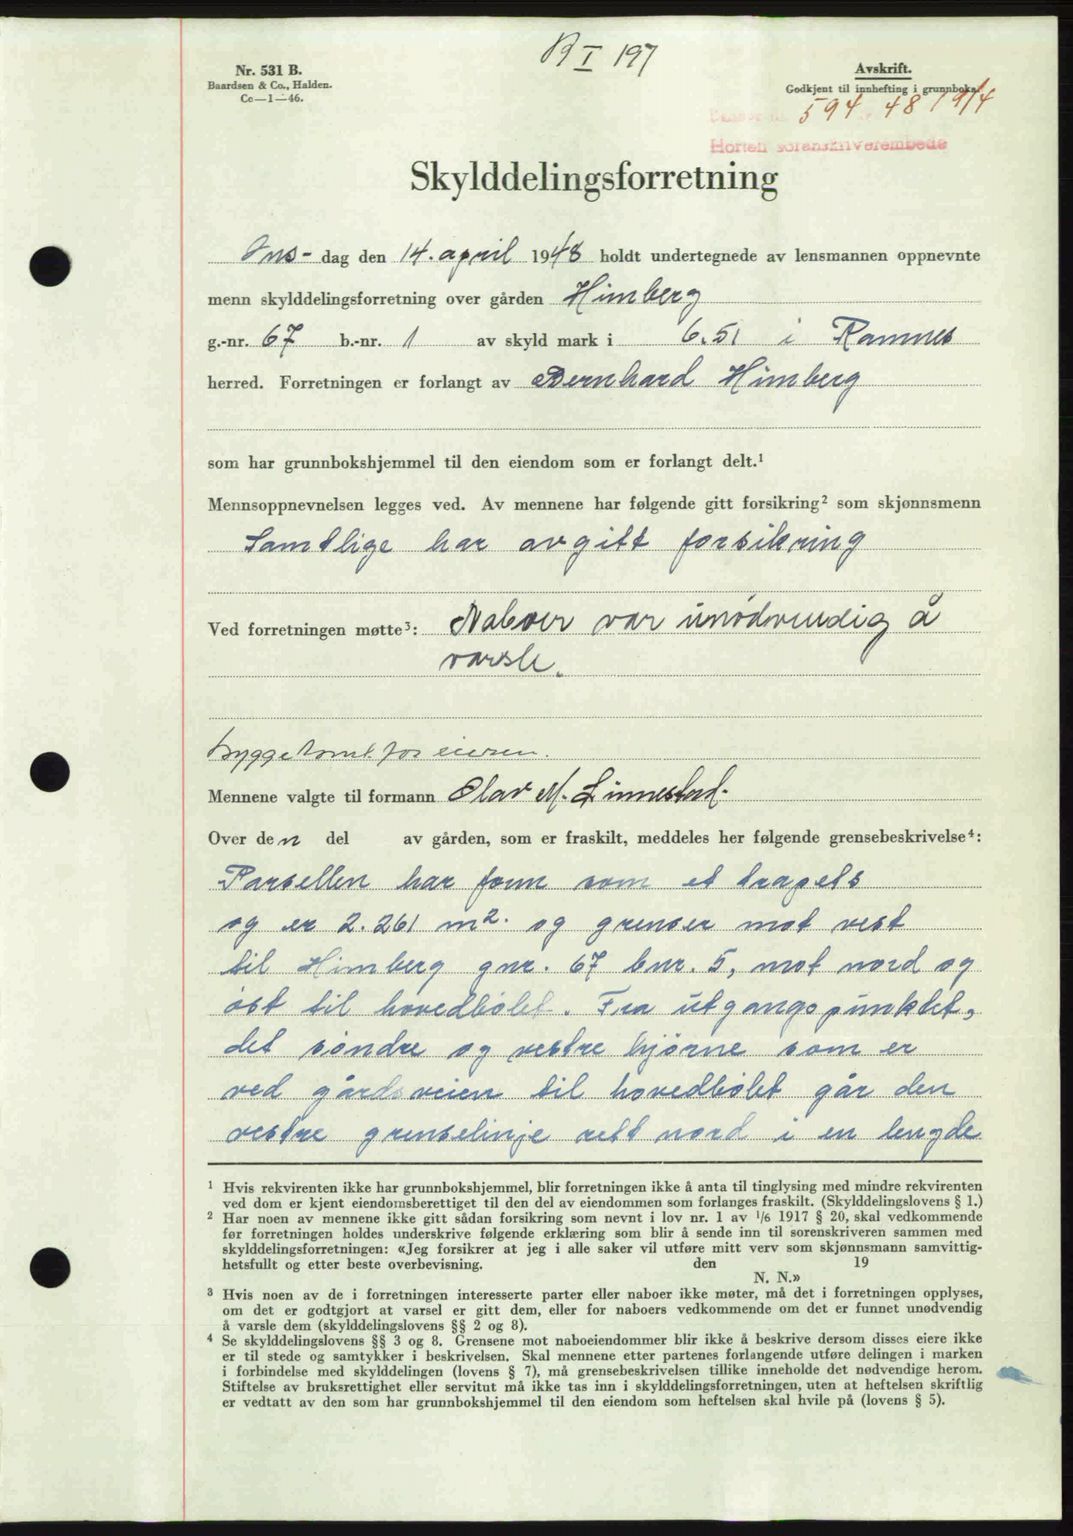 B I 197
Nr. 531 B.
Baardsen & Co., Halden.
Cc—1—46.
Avskrift.
Godkjent til innhefting i grunnboka
594 48 19/4
Horten sorenskriverembede
Skylddelingsforretning
Ons- dag den 14. april 1948 holdt undertegnede av lensmannen oppnevnte
menn skylddelingsforretning over gården Himberg
g.-nr. 67 b.-nr. 1 av skyld mark i 6.51 i Ramnes
herred. Forretningen er forlangt av Bernhard Himberg
som har grunnbokshjemmel til den eiendom som er forlangt delt.¹
Mennsoppnevnelsen legges ved. Av mennene har følgende gitt forsikring² som skjønnsmenn
Samtlige har avgitt forsikring
Ved forretningen møtte³: Naboer var unødvendig å
varsle.
byggetomt for eieren.
Mennene valgte til formann Olav M. Linnestad.
Over den del av gården, som er fraskilt, meddeles her følgende grensebeskrivelse⁴:
Parsellen har form som et trapets
og er 2.261 m². og grenser mot vest
til Himberg gnr. 67 bnr. 5, mot nord og
øst til hovedbølet. Fra utgangspunktet,
det søndre og vestre hjørne som er
ved gårdsveien til hovedbølet går den
vestre grenselinje rett nord i en lengde
¹ Hvis rekvirenten ikke har grunnbokshjemmel, blir forretningen ikke å anta til tinglysing med mindre rekvirenten
ved dom er kjent eiendomsberettiget til den del av eiendommen som forlanges fraskilt. (Skylddelingslovens § 1.)
² Har noen av mennene ikke gitt sådan forsikring som nevnt i lov nr. 1 av ¹/₆ 1917 § 20, skal vedkommende
før forretningen holdes underskrive følgende erklæring som blir å sende inn til sorenskriveren sammen med
skylddelingsforretningen: «Jeg forsikrer at jeg i alle saker vil utføre mitt verv som skjønnsmann samvittig-
hetsfullt og etter beste overbevisning. den 19
N. N.»
³ Hvis noen av de i forretningen interesserte parter eller naboer ikke møter, må det i forretningen opplyses,
om det er godtgjort at varsel er gitt dem, eller for naboers vedkommende om det er funnet unødvendig
å varsle dem (skylddelingslovens §§ 2 og 8).
⁴ Se skylddelingslovens §§ 3 og 8. Grensene mot naboeiendommer blir ikke å beskrive dersom disses eiere ikke
er til stede og samtykker i beskrivelsen. Skal mennene etter partenes forlangende utføre delingen i marken
i forbindelse med skylddelingen (lovens § 7), må grensebeskrivelsen tillike inneholde det nødvendige herom.
Stiftelse av bruksrettighet eller servitut må ikke tas inn i skylddelingsforretningen, uten at heftelsen skriftlig
er vedtatt av den som har grunnbokshjemmel til den eiendom som heftelsen skal hvile på (lovens § 5).